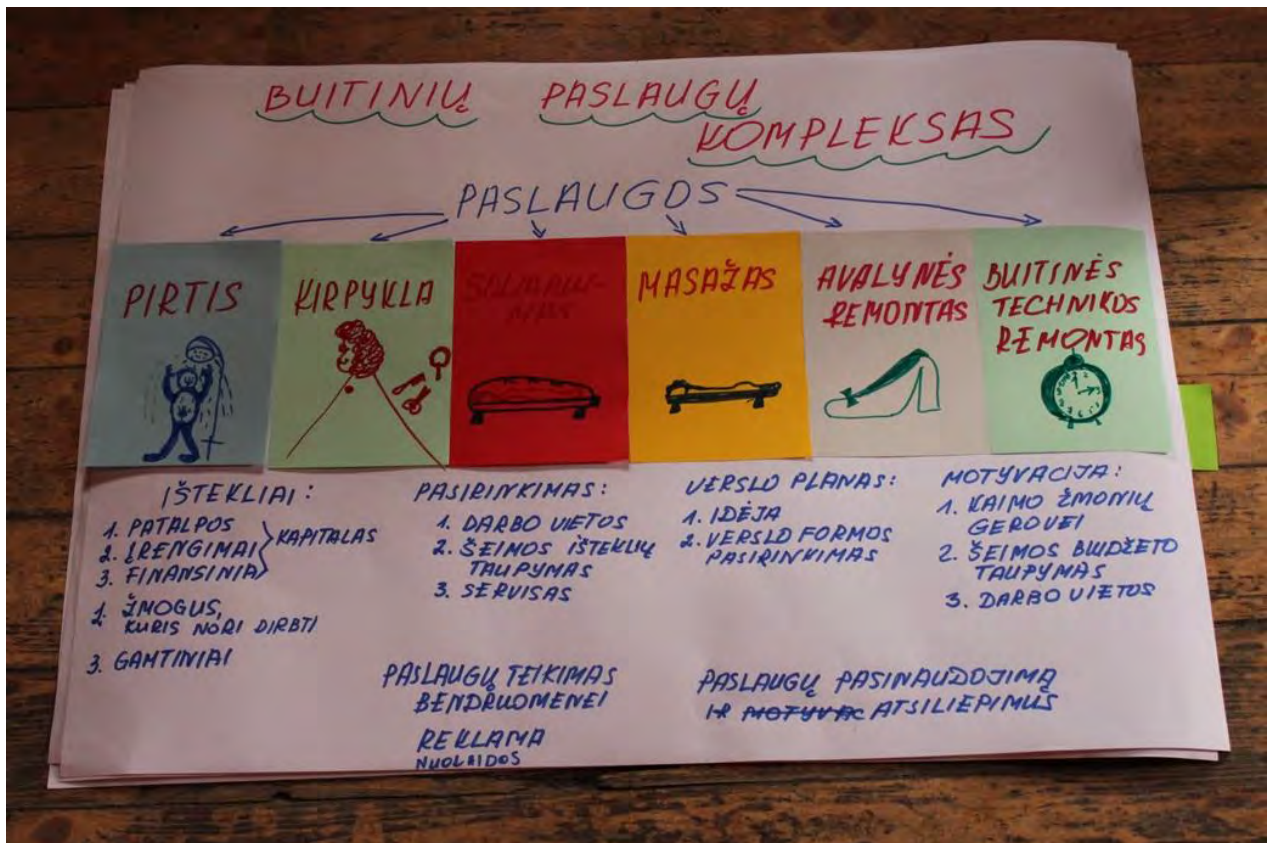 BUITINIŲ PASLAUGŲ
KOMPLEKSAS
PASLAUGOS
PIRTIS
KIRPYKLA
MASAŽAS
AVALYNĖS
REMONTAS
BUITINĖS
TECHNIKOS
REMONTAS
IŠTEKLIAI:
1. PATALPOS
2. ĮRENGIMAI
3. FINANSINIAI
KAPITALAS
2. ŽMOGUS,
KURIS NORI DIRBTI
3. GAMTINIAI
PASIRINKIMAS:
1. DARBO VIETOS
2. ŠEIMOS IŠTEKLIŲ
TAUPYMAS
3. SERVISAS
VERSLO PLANAS:
1. IDĖJA
2. VERSLO FORMOS
PASIRINKIMAS
MOTYVACIJA:
1. KAIMO ŽMONIŲ
GEROVEI
2. ŠEIMOS BIUDŽETO
TAUPYMAS
3. DARBO VIETOS
PASLAUGŲ TEIKIMAS
BENDRUOMENEI
REKLAMA
NUOLAIDOS
PASLAUGŲ PASINAUDOJIMĄ
IR MOTYVAC ATSILIEPIMUS